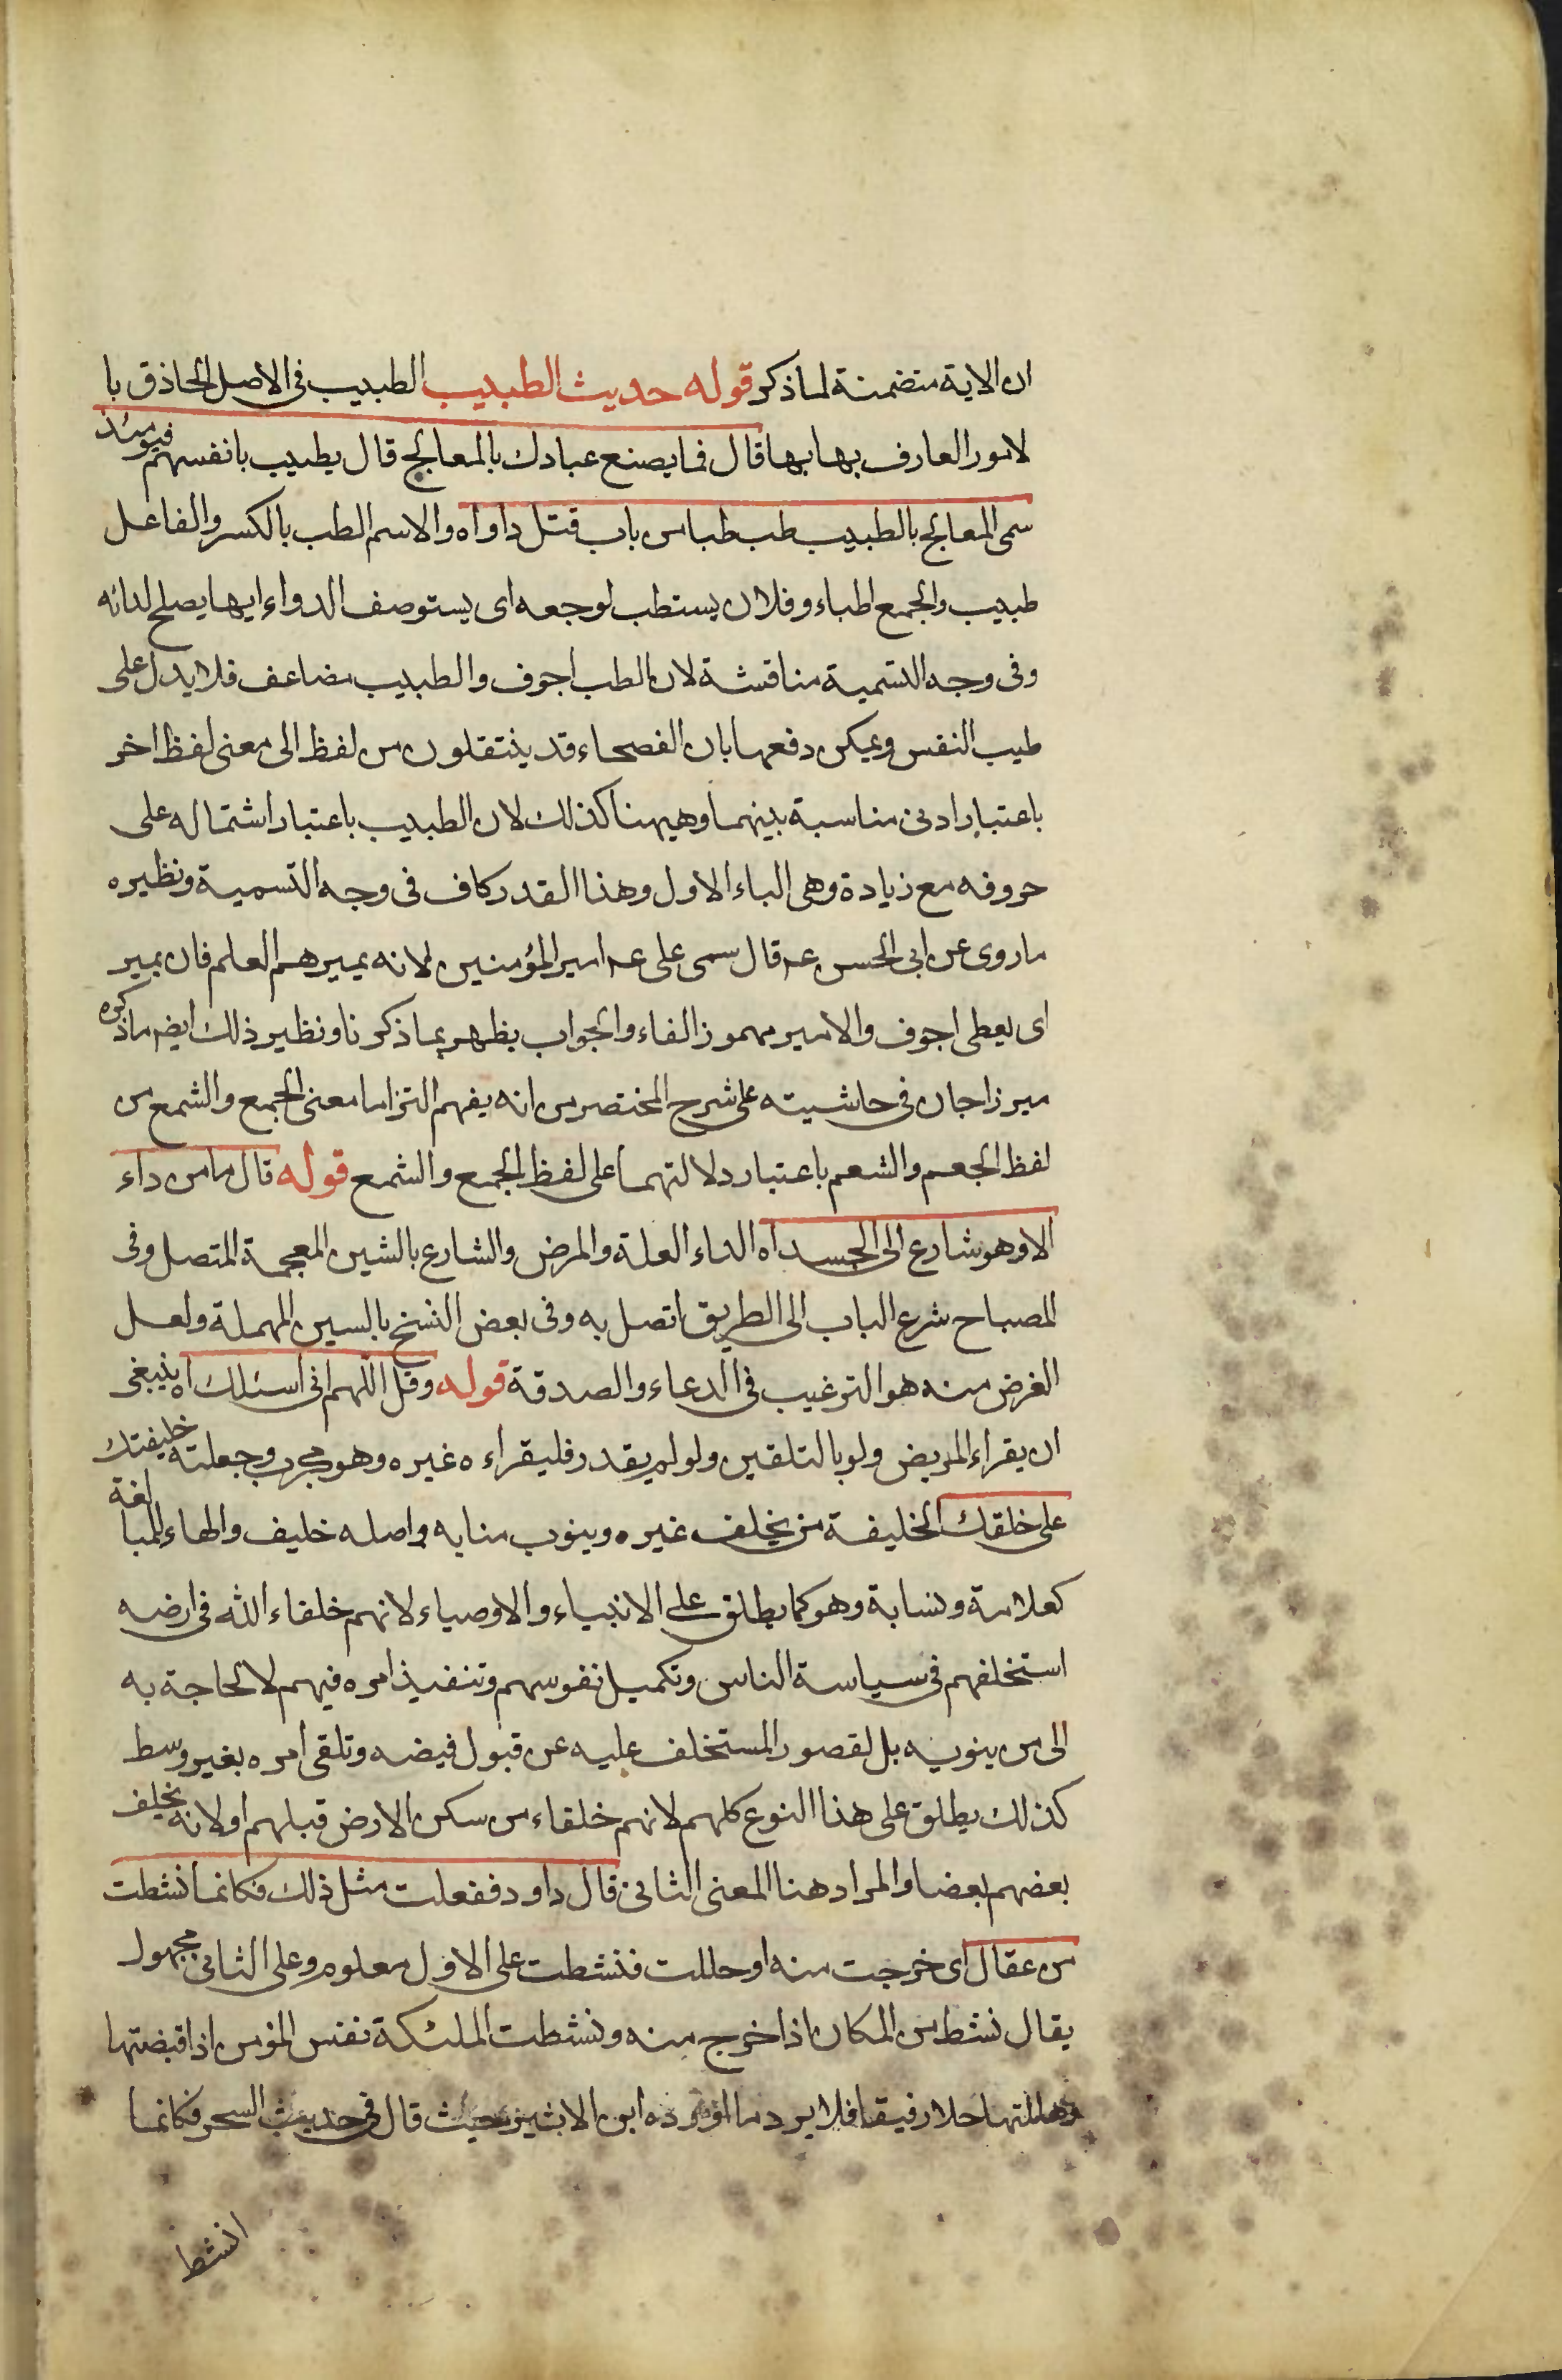 ان الاية متضمنة لما ذكر قوله حديث الطبيب الطبيب فى الاصل الحاذق با
لامور العارف بها بها قال فما يصنع عبادك بالمعالج قال يطبيب بانفسهم فيومئذ
سمى المعالج بالطبيب طب طبا من باب قتل داواه والاسم الطب بالكسر والفاعل
طبيب والجمع اطباء وفلان يستطب لوجعه اى يستوصف الدواء ايها يصلح لدائه
وفى وجه التسمية مناقشة لان الطب اجوف والطبيب مضاعف فلا يدل على
طيب النفس ويمكن دفعها بان الفصحاء قد ينتقلون من لفظ الى معنى لفظ اخر
باعتبار ادنى مناسبة بينهما وهيهنا كذلك لان الطبيب باعتبار اشتماله على
حروفه مع زيادة وهى الباء الاول وهذا القدر كاف فى وجه التسمية ونظيره
ما روى عن ابى الحسن عه قال سمى على عه امير المؤمنين لانه يميرهم العلم فان يمير
اى يعطى اجوف والامير مهموز الفاء والجواب يظهر بما ذكرنا ونظير ذلك ايضم ما ذكره
ميرزاجان فى حاشيته على شرح المختصر من انه يفهم التزاما معنى الجمع والشمع من
لفظ الجعم والشعم باعتبار دلالتهما على لفظ الجمع والشمع قوله قال ما من داء
الا وهو شارع الى الجسد اه الداء العلة والمرض والشارع بالشين المعجمة المتصل وفى
المصباح شرع الباب الى الطريق اتصل به وفى بعض النسخ بالسين المهملة ولعل
الغرض منه هو الترغيب فى الدعاء والصدقة قوله وقل اللهم انى اسئلك اه ينبغى
ان يقراء المريض ولو بالتلقين ولو لم يقدر فليقراءه غيره وهو مجرب وجعلته خليفتك
على خلقك الخليفة من يخلف غيره وينوب منابه واصله خليف والهاء للمبالغة
كعلامة ونسابة وهو كما يطلق على الانبياء والاوصياء لانهم خلفاء الله فى ارضه
استخلفهم فى سياسة الناس وتكميل نفوسهم وتنفيذ امره فيهم لا لحاجة به
الى من ينوبه بل لقصور المستخلف عليه عن قبول فيضه وتلقى امره بغير وسط
كذلك يطلق على هذا النوع كلهم لانهم خلفاء من سكن الارض قبلهم او لانه يخلف
بعضهم بعضا والمراد هنا المعنى الثانى قال داود ففعلت مثل ذلك فكانما نشطت
من عقال اى خرجت منه او حللت فنشطت على الاول معلوم وعلى الثانى مجهول
يقال نشط من المكان اذا خرج منه ونشطت الملئكة نفس المؤمن اذا قبضتها
وحللتها حلا رفيقا فلا يرد ما اورده ابن الاثير حيث قال فى حديث السحر فكانما
انشط